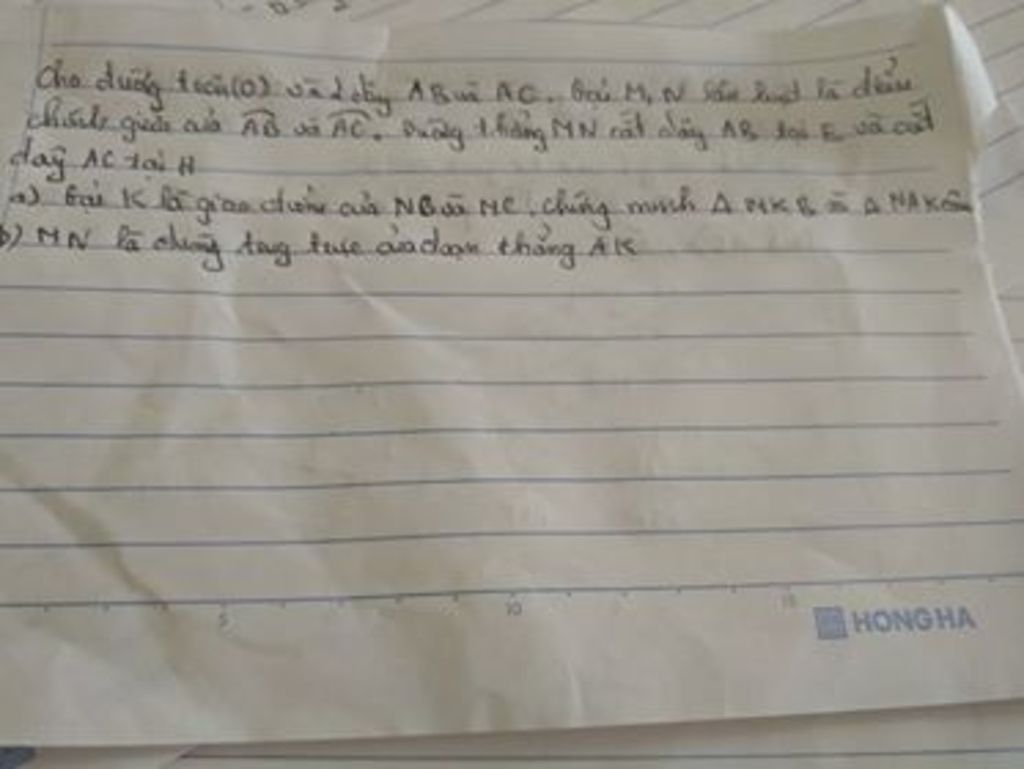 Cho đường tròn (O) và 2 dây AB và AC. Gọi M, N lần lượt là điểm
chính giữa của AB và AC. Đường thẳng MN cắt dây AB tại E và cắt
dây AC tại H
a) Gọi K là giao điểm của NB và MC. Chứng minh Δ MKB và Δ NAK cân
b) MN là đường trung trực của đoạn thẳng AK
5 10 15
HONG HA